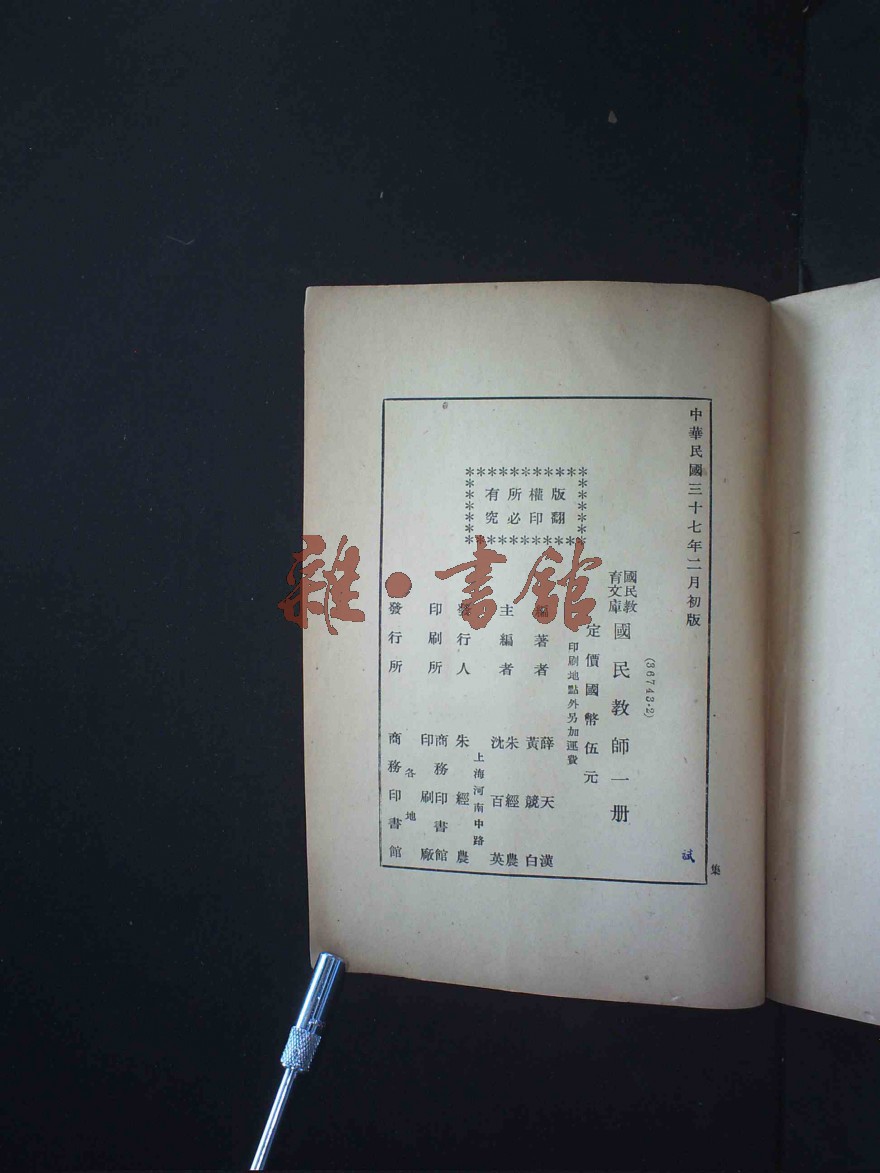 中華民國三十七年二月初版
(36743·2)
國民教育文庫
國民教師一册
定價國幣伍元
印刷地點外另加運費
版權所有
翻印必究
編著者 薛天漢 黃競白
主編者 朱經農 沈百英
上海河南中路
發行人 朱經農
印刷所 商務印書館印刷廠
各地
發行所 商務印書館
集
雜·書館